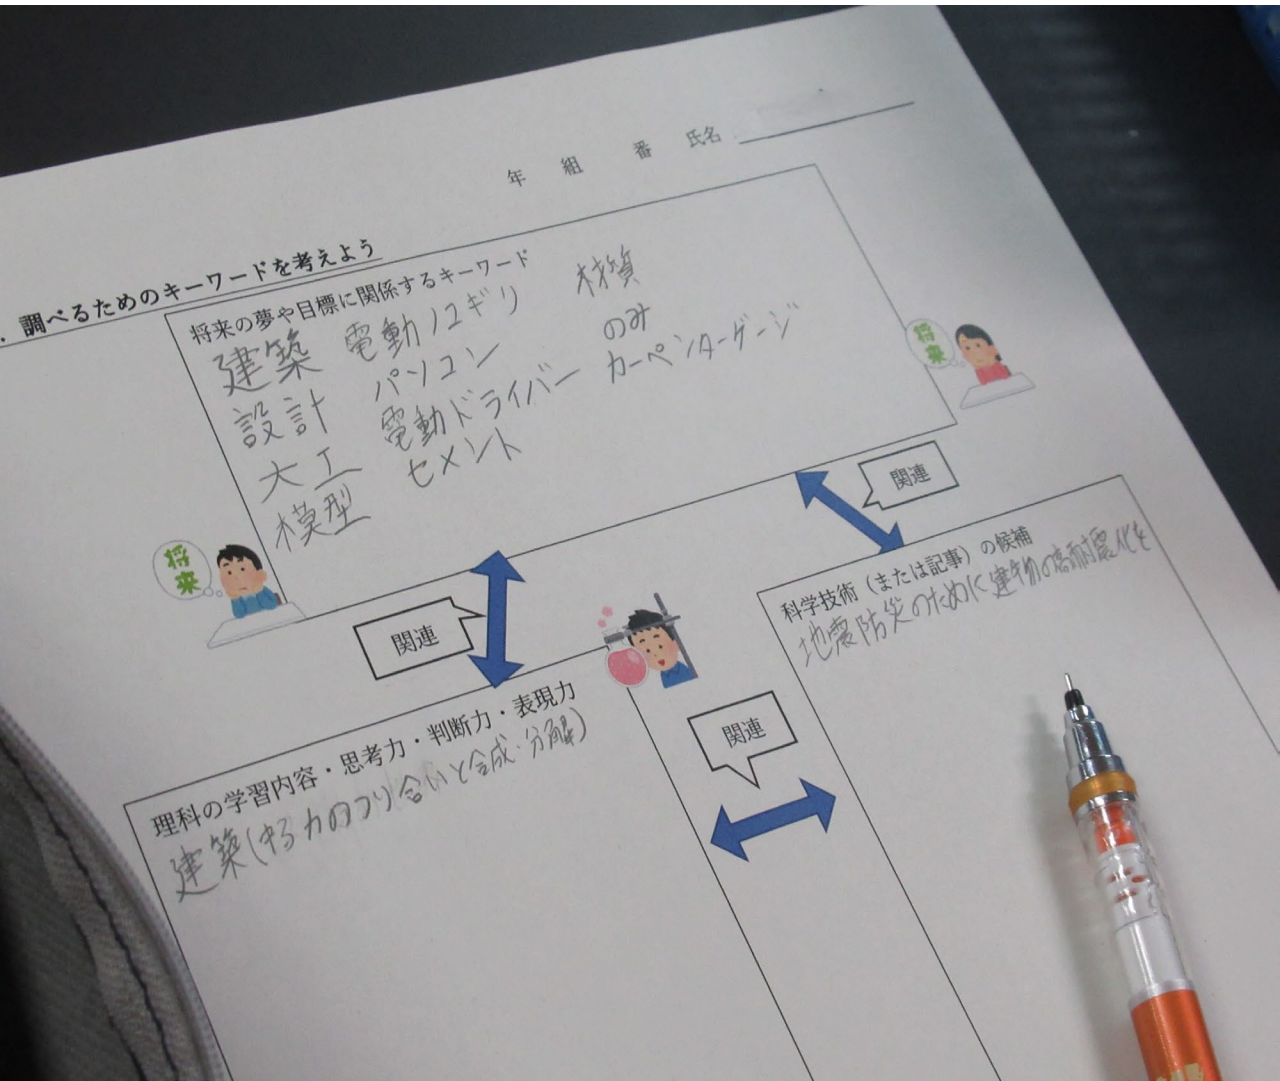 年 組 番 氏名
. 調べるためのキーワードを考えよう
将来の夢や目標に関係するキーワード
建築 電動ノコギリ 材質
設計 パソコン のみ
大工 電動ドライバー カーペンターゲージ
模型 セメント
将来
将来
関連
関連
科学技術（または記事）の候補
地震防災のために建物の高耐震化を
関連
理科の学習内容・思考力・判断力・表現力
建築(中3力のつり合いと合成・分解)